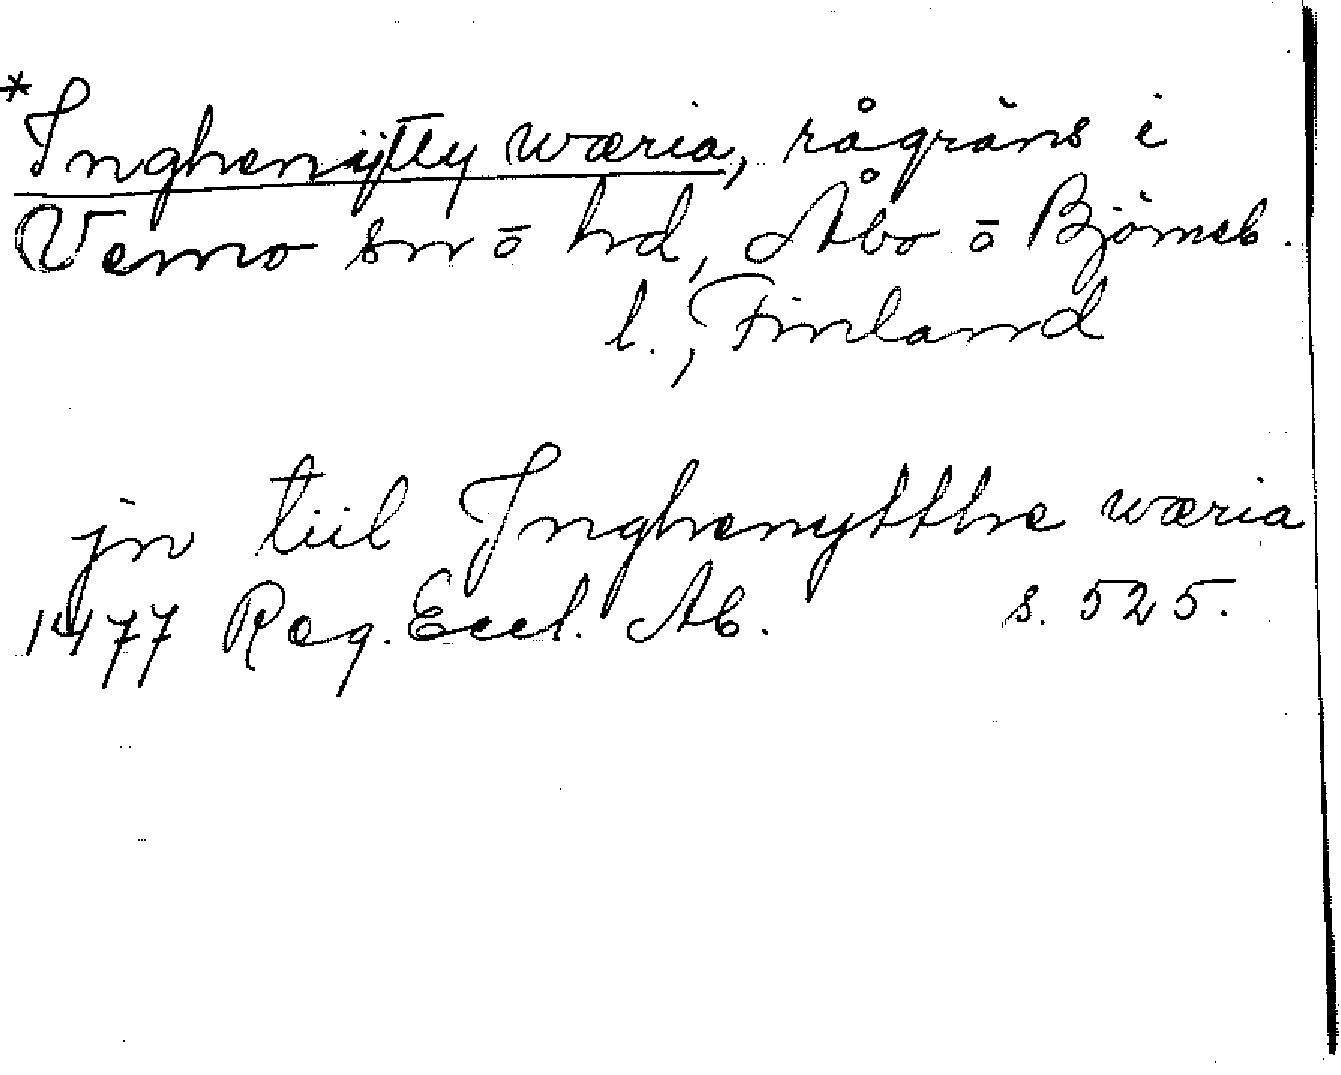 *Inghenÿtty wæria, rågräns i
Vemo sn ō hd, Åbo ō Björneb.
l., Finland
jn tiil Jnghenytthe wæria
1477 Reg. Eccl. Ab. s. 525.